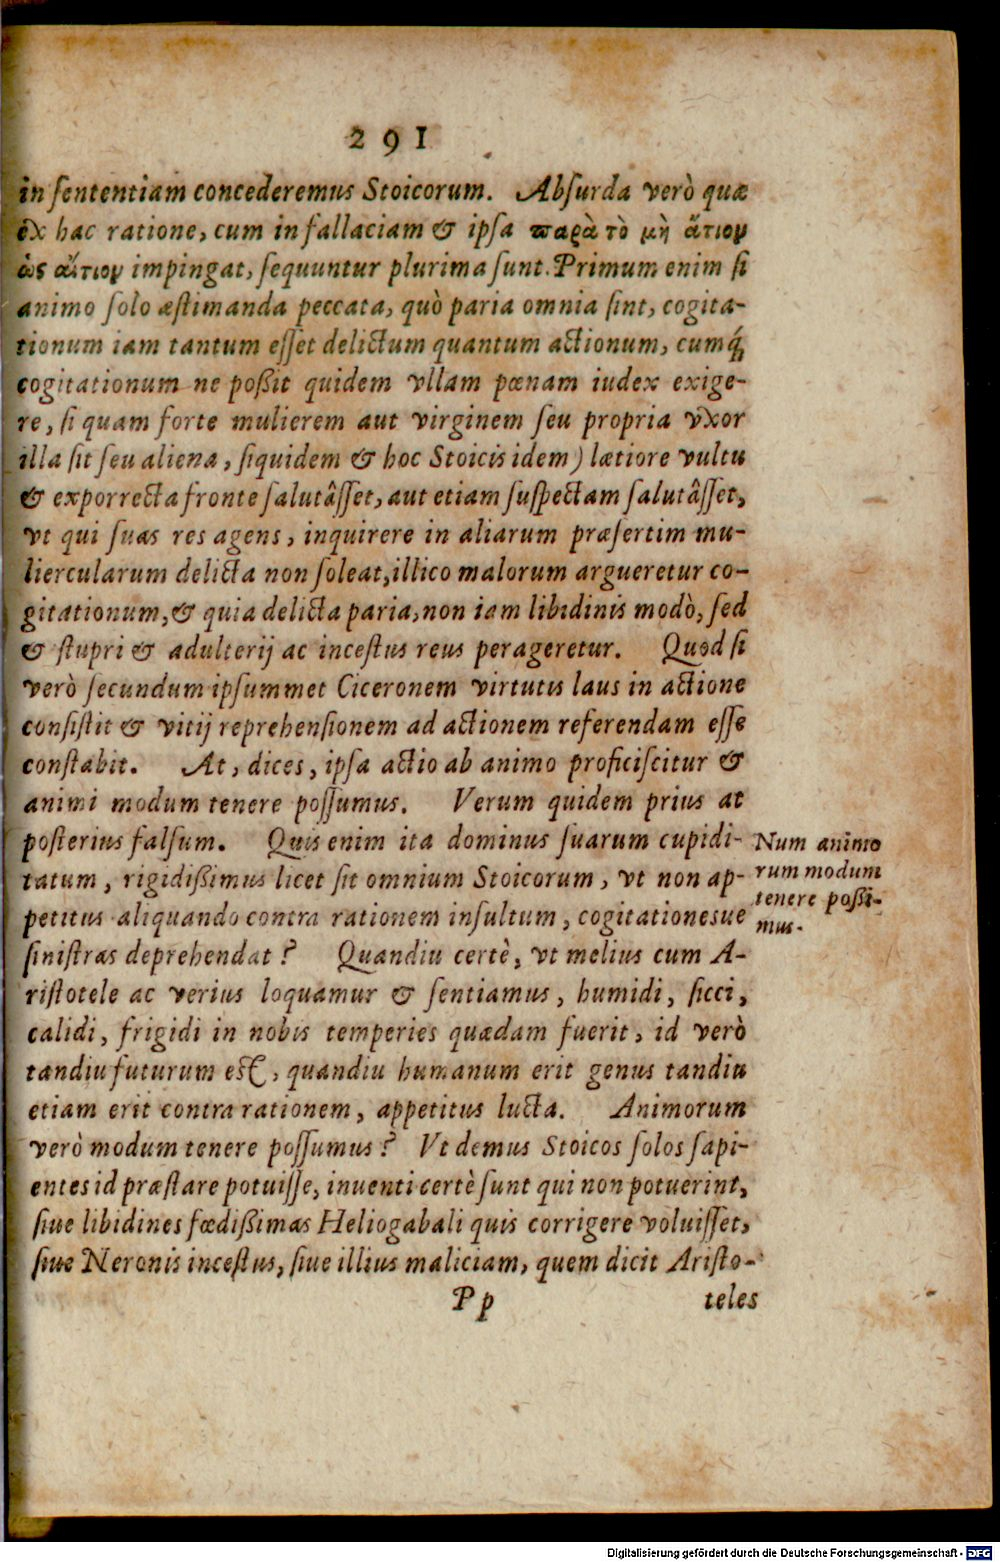 291
in sententiam concederemus Stoicorum. Absurda verò quæ
ex hac ratione, cum in fallaciam & ipsa παρὰ τὸ μὴ ἄτιον
ὡς αἴτιον impingat, sequuntur plurima sunt. Primum enim si
animo solo æstimanda peccata, quò paria omnia sint, cogita-
tionum iam tantum esset delictum quantum actionum, cumq́
cogitationum ne poßit quidem vllam pœnam iudex exige-
re, si quam forte mulierem aut virginem seu propria vxor
illa sit seu aliena, siquidem & hoc Stoicis idem) lætiore vultu
& exporrecta fronte salutâsset, aut etiam suspectam salutâsset,
vt qui suas res agens, inquirere in aliarum præsertim mu-
liercularum delicta non soleat, illico malorum argueretur co-
gitationum, & quia delicta paria, non iam libidinis modò, sed
& stupri & adulterij ac incestus reus perageretur. Quod si
verò secundum ipsummet Ciceronem virtutis laus in actione
consistit & vitij reprehensionem ad actionem referendam esse
constabit. At, dices, ipsa actio ab animo proficiscitur &
animi modum tenere possumus. Verum quidem prius at
posterius falsum. Quis enim ita dominus suarum cupidi-
tatum, rigidißimus licet sit omnium Stoicorum, vt non ap-
petitus aliquando contra rationem insultum, cogitationesue
sinistras deprehendat? Quandiu certè, vt melius cum A-
ristotele ac verius loquamur & sentiamus, humidi, sicci,
calidi, frigidi in nobis temperies quædam fuerit, id verò
tandiu futurum est, quandiu humanum erit genus tandiu
etiam erit contra rationem, appetitus lucta. Animorum
verò modum tenere possumus? Vt demus Stoicos solos sapi-
entes id præstare potuisse, inuenti certè sunt qui non potuerint,
siue libidines fœdißimas Heliogabali quis corrigere voluisset,
siue Neronis incestus, siue illius maliciam, quem dicit Aristo-
Pp teles
Num animo
rum modum
tenere poßi-
mus.
Digitalisierung gefördert durch die Deutsche Forschungsgemeinschaft - DFG